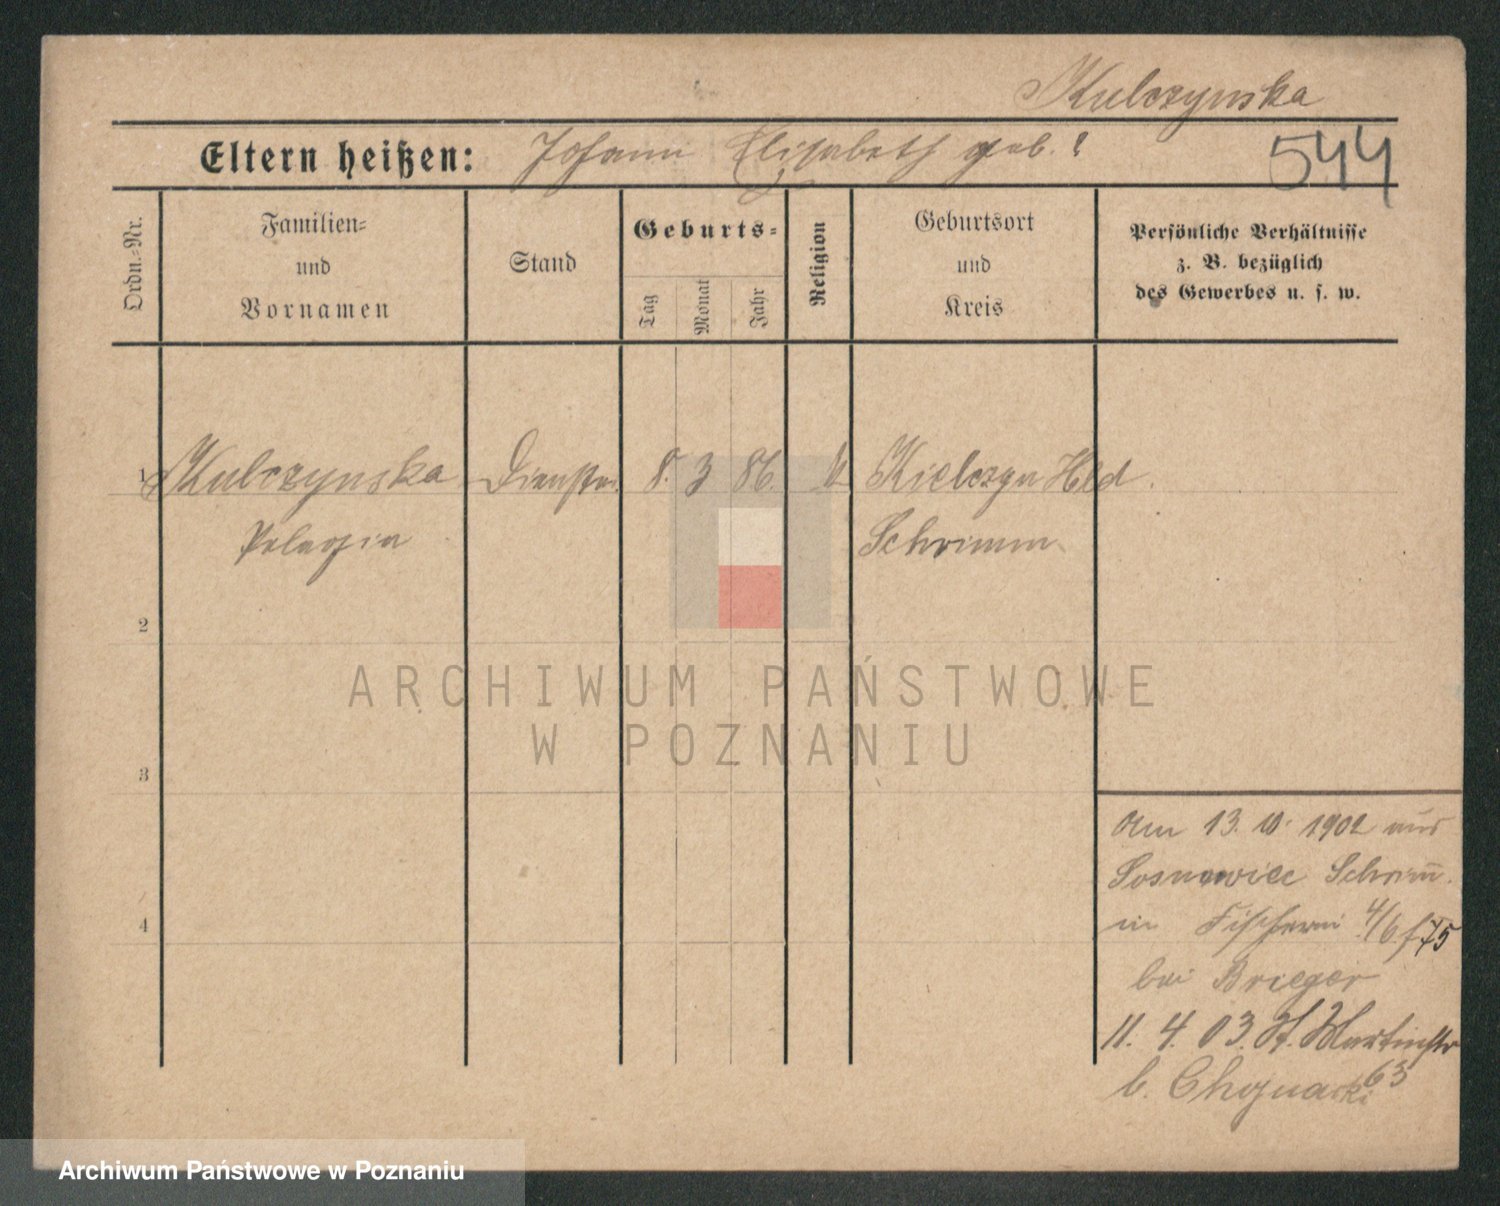 Kulczynska
Eltern heißen: Johann Elisabeth geb. ?
544
Ordn.=Nr.
Familien=
und
Vornamen
Stand
Geburts=
Tag
Monat
Jahr
Religion
Geburtsort
und
Kreis
Persönliche Verhältnisse
z. B. bezüglich
des Gewerbes u. s. w.
1 Kulczynska 8. 3 86. Kielczyn Hld.
Pelagia Schrimm
2
ARCHIWUM PAŃSTWOWE
W POZNANIU
3
4
Am 13. 10. 1902 aus
Sosnowiec Schrim̄.
in Fischerei 4/6 f. 75
bei Brieger
11. 4. 03. St. Martinstr
63
b. Chojnacki
Archiwum Państwowe w Poznaniu